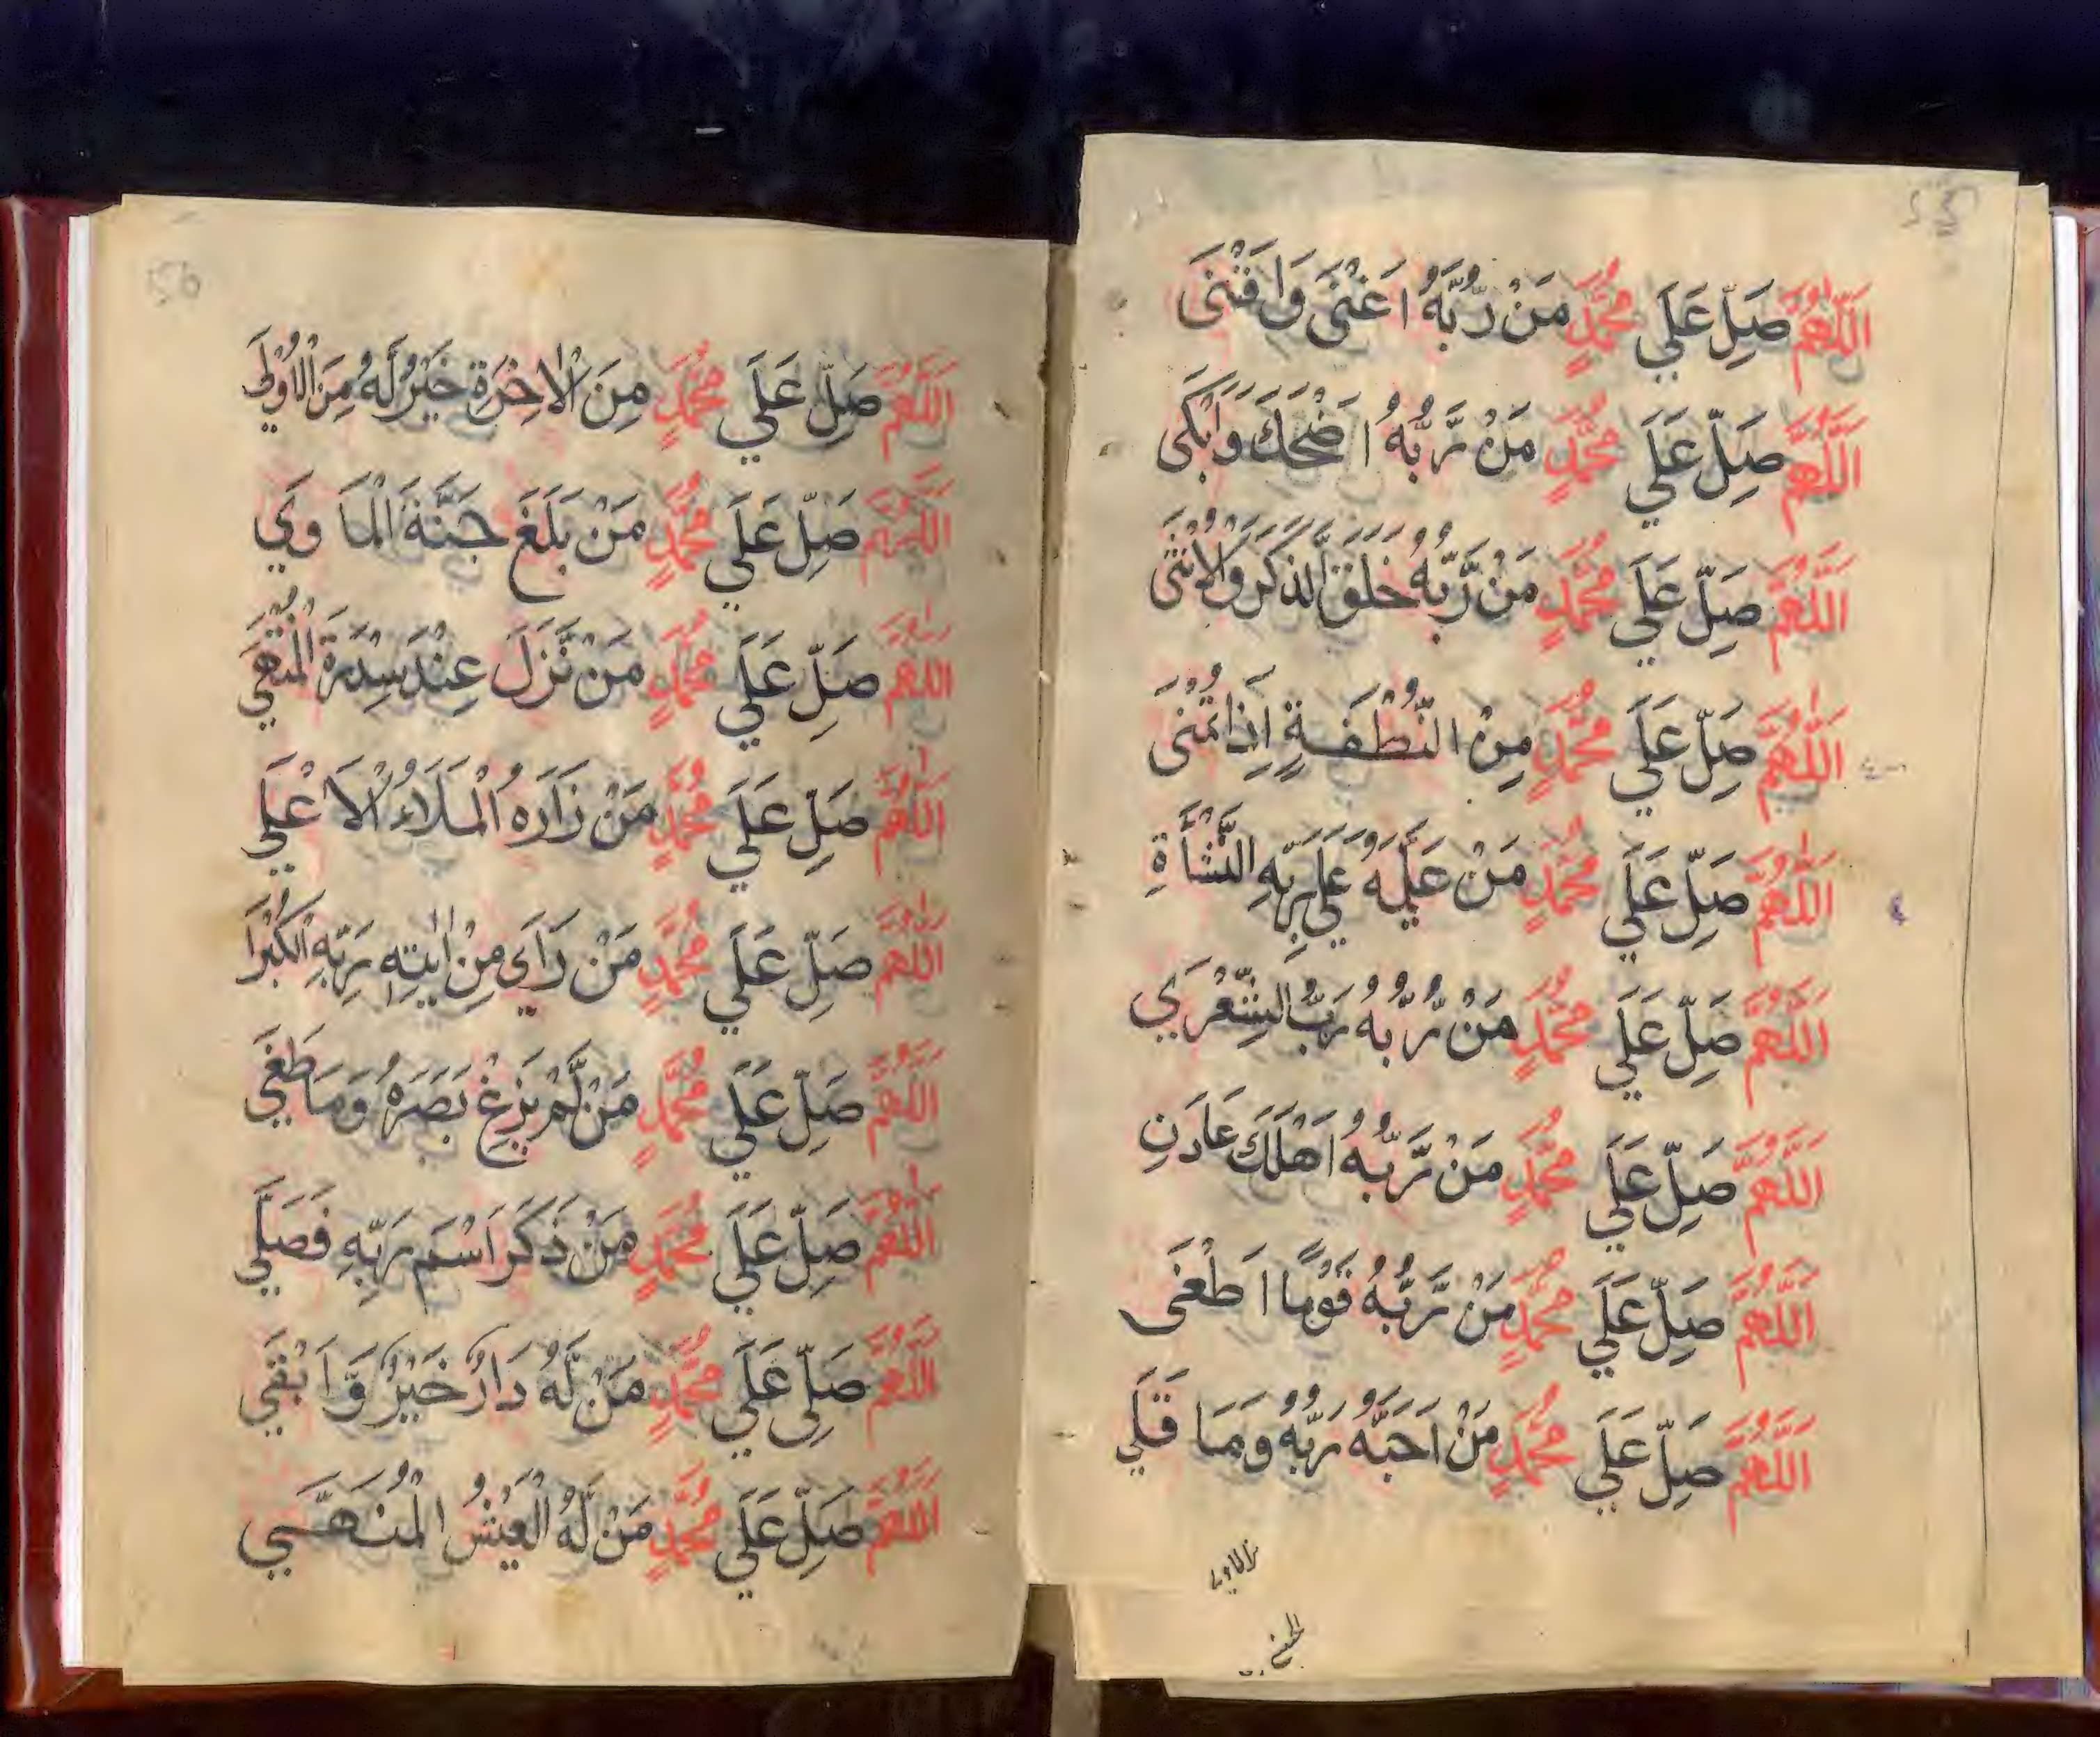 اَللّٰهُمَّ صَلِّ عَلَي مُحَمَّدٍ مَنْ رَّبُّهُ اَغْنٰى وَاَقْنٰى
اَللّٰهُمَّ صَلِّ عَلَي مُحَمَّدٍ مَنْ رَّبُّهُ اَضْحَكَ وَاَبْكَى
اَللّٰهُمَّ صَلِّ عَلَي مُحَمَّدٍ مَنْ رَّبُّهُ خَلَقَ الذَّكَرَ وَالْاُنْثٰى
اَللّٰهُمَّ صَلِّ عَلَي مُحَمَّدٍ مِنْ النُّطْفَةٍ اِذَا تُمْنٰى
اَللّٰهُمَّ صَلِّ عَلَي مُحَمَّدٍ مَنْ عَلَيْهُ عَلَي رَبِّهِ النَّشْأَةِ
اَللّٰهُمَّ صَلِّ عَلَي مُحَمَّدٍ مَنْ رَّبُّهُ رَبُّ الشِّعْرَي
اَللّٰهُمَّ صَلِّ عَلَي مُحَمَّدٍ مَنْ رَّبُّهُ اَهْلَكَ عَادَنِ
اَللّٰهُمَّ صَلِّ عَلَي مُحَمَّدٍ مَنْ رَّبُّهُ قَوْمًا اَطْغٰى
اَللّٰهُمَّ صَلِّ عَلَي مُحَمَّدٍ مَنْ اَحَبَّهُ رَبُّهُ وَمَا قَلَي
56
اَللّٰهُمَّ صَلِّ عَلَي مُحَمَّدٍ مِنَ الْاٰخِرَةِ خَيْرٌ لَهُ مِنَ الْاُوْلَي
اَللّٰهُمَّ صَلِّ عَلَي مُحَمَّدٍ مَنْ بَلَغَ جَنَّةَ الْمَاوَي
اَللّٰهُمَّ صَلِّ عَلَي مُحَمَّدٍ مَنْ نَّزَلَ عِنْدَ سِدْرَةِ الْمُنْتَهَي
اَللّٰهُمَّ صَلِّ عَلَي مُحَمَّدٍ مَنْ زَارَهُ الْمَلَاءُ الْاَعْلَي
اَللّٰهُمَّ صَلِّ عَلَي مُحَمَّدٍ مَنْ رَاَي مِنْ اٰيٰتِهِ رَبِّهِ الْكُبْرَا
اَللّٰهُمَّ صَلِّ عَلَي مُحَمَّدٍ مَنْ لَّمْ يَزِغْ بَصَرَهُ وَمَا طَغَي
اَللّٰهُمَّ صَلِّ عَلَي مُحَمَّدٍ مَنْ ذَكَرَ اسْمَ رَبِّهِ فَصَلَّي
اَللّٰهُمَّ صَلِّي عَلَي مُحَمَّدٍ مَنْ لَّهُ دَارٌ خَيْرٌ وَّاَبْقَي
اَللّٰهُمَّ صَلِّ عَلَي مُحَمَّدٍ مَنْ لَّهُ الْعَيْشُ الْمُنَهَّي